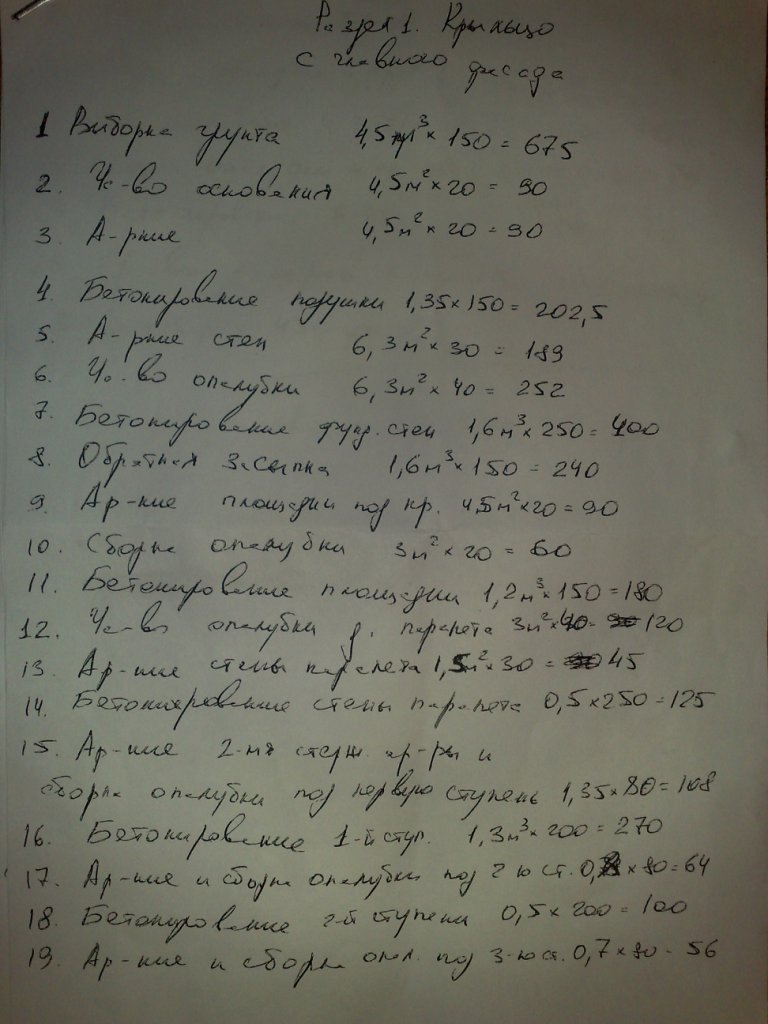 Раздел 1. Крыльцо
с главного фасада
1 Выборка грунта 4,5м³ × 150 = 675
2. Ус-во основания 4,5м² × 20 = 90
3. А-рние 4,5м² × 20 = 90
4. Бетонирование подушки 1,35 × 150 = 202,5
5. А-рние стен 6,3м² × 30 = 189
6. Ус-во опалубки 6,3м² × 40 = 252
7. Бетонирование фунд. стен 1,6м³ × 250 = 400
8. Обратная засыпка 1,6м³ × 150 = 240
9. Ар-ние площадки под кр. 4,5м² × 20 = 90
10. Сборка опалубки 3м² × 20 = 60
11. Бетонирование площадки 1,2м³ × 150 = 180
12. Ус-во опалубки д. парапета 3м² × 40 = 120
13. Ар-ние стены парапета 1,5м² × 30 = 45
14. Бетонирование стены парапета 0,5 × 250 = 125
15. Ар-ние 2-мя стерж. ар-ры и
сборка опалубки под первую ступень 1,35 × 80 = 108
16. Бетонирование 1-й ступ. 1,3м³ × 200 = 270
17. Ар-ние и сборка опалубки под 2 ю ст. 0,8 × 80 = 64
18. Бетонирование 2-й ступени 0,5 × 200 = 100
19. Ар-ние и сборка опал. под 3-ю ст. 0,7 × 80 = 56